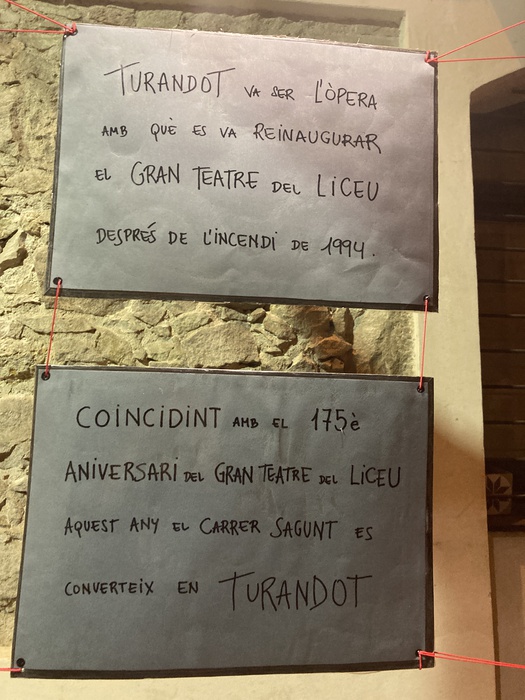 TURANDOT VA SER L'ÒPERA
AMB QUÈ ES VA REINAUGURAR
EL GRAN TEATRE DEL LICEU
DESPRÉS DE L'INCENDI DE 1994.
COINCIDINT AMB EL 175è
ANIVERSARI DEL GRAN TEATRE DEL LICEU
AQUEST ANY EL CARRER SAGUNT ES
CONVERTEIX EN TURANDOT